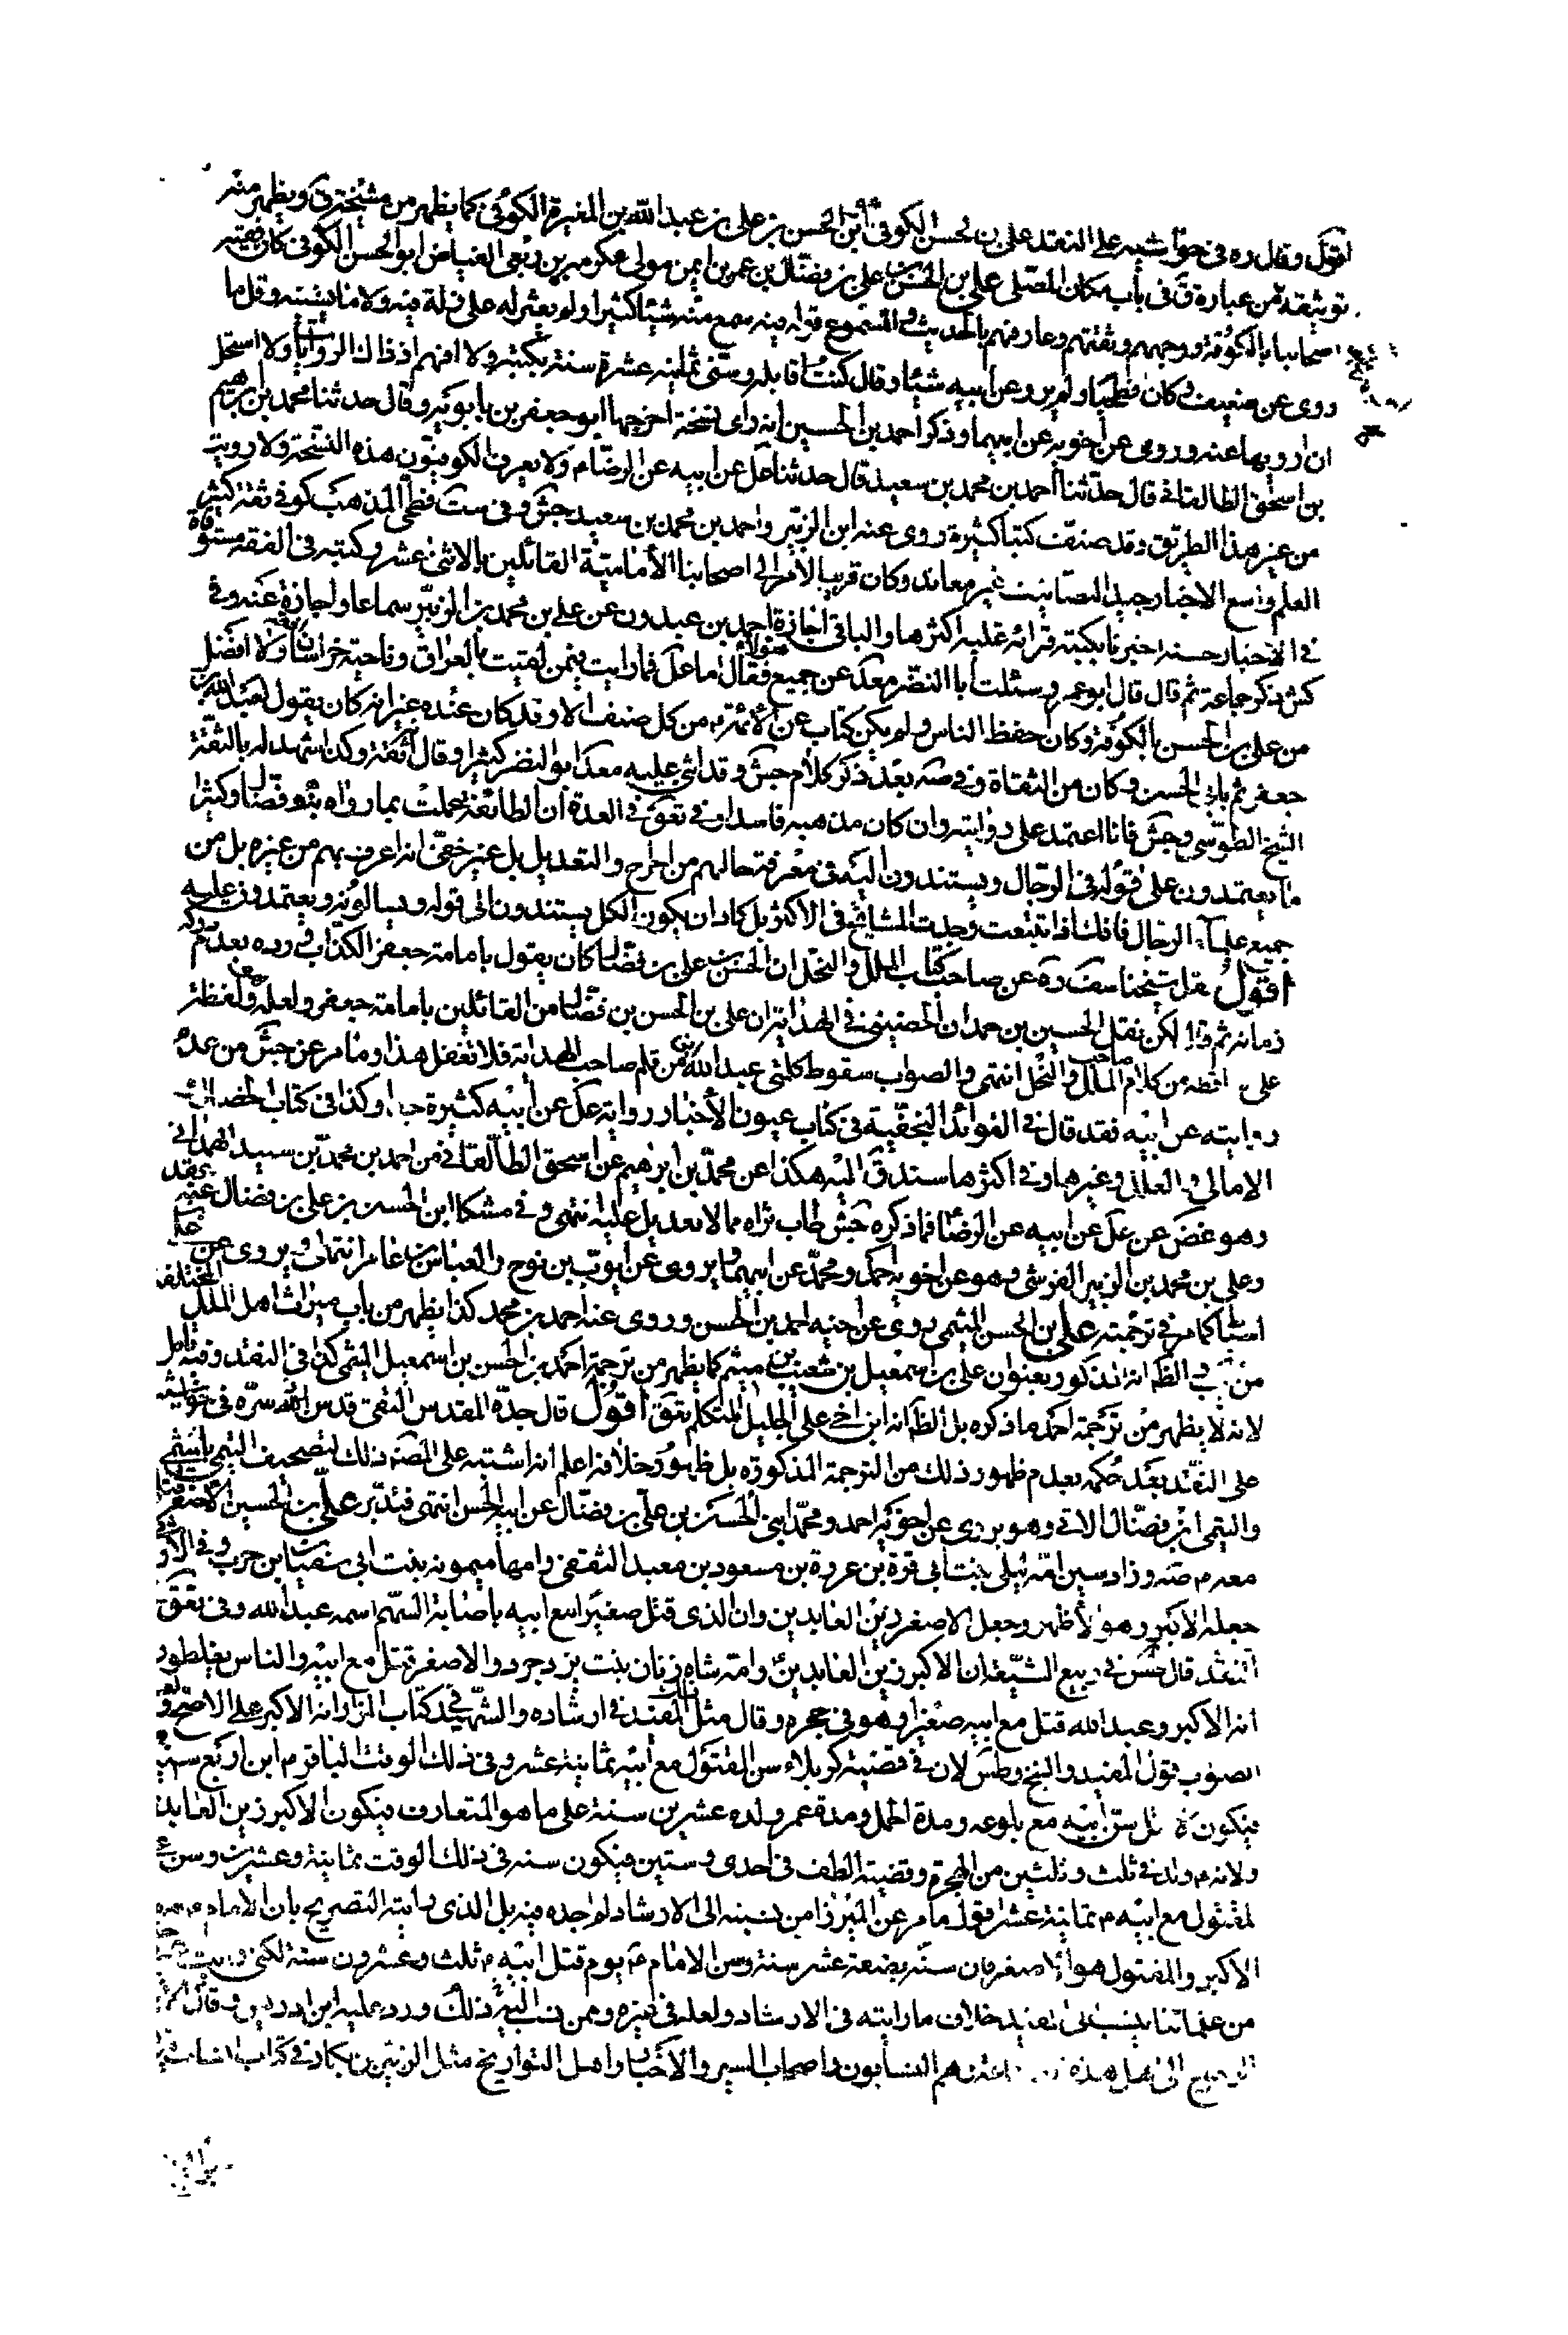 اقول وقال ره فى حواشيه على النقد على بن الحسن الكوفى ابن الحسن بن على بن عبد الله بن المغيرة الكوفى كما يظهر من مشيخة ق ويظهر منه
توثيقه من عبارة ق فى باب مكان المصلى على بن الحسن بن على بن فضال بن عمر بن ايمن مولى عكرمة بن ربعى الفياض ابو الحسن الكوفى كان فقيه
اصحابنا بالكوفة ووجههم وثقتهم وعارفهم بالحديث والمسموع قوله فيه سمع منه شيئا كثيرا ولم يعثر له على زلة فيه ولا ما يشينه وقل ما
روى عن ضعيف وكان فطحيا ولم يرو عن ابيه شيئا وقال كنت اقابله وسنى ثمانية عشرة سنة بكتبه ولا افهم اذ ذاك الروايات ولا استحل
ان ارويها عنه وروى عن اخويه عن ابيهما وذكر احمد بن الحسين انه راى نسخة اخرجها ابو جعفر بن بابويه وقال حدثنا محمد بن ابرهيم
بن اسحق الطالقانى قال حدثنا احمد بن محمد بن سعيد قال حدثنا عل عن ابيه عن الرضا م ولا يعرف الكوفيون هذه النسخة ولا رويت
من غير هذا الطريق وقد صنف كتبا كثيرة روى عنه ابن الزبير واحمد بن محمد بن سعيد جش وفى ست فطحى المذهب كوفى ثقة كثير
العلم واسع الاخبار جيد التصانيف غير معاند وكان قريب الامر الى اصحابنا الامامية القائلين بالاثنى عشر وكتبه فى الفقه مستوفاة
فى الاخبار حسنة اخبرنا بكتبه قرائة عليه اكثرها والباقى اجازة احمد بن عبدون عن على بن محمد بن الزبير سماعا واجازة عنه وفى
كش ذكر جماعة ثم قال قال ابو عمرو سئلت ابا النضر معد عن جميع هؤلاء فقال اما عل فما رايت فيمن لقيت بالعراق وناحية خراسان افقه ولا افضل
من على بن الحسن بالكوفة وكان احفظ الناس ولم يكن كتاب عن الائمة م من كل صنف الا وقد كان عنده غير انه كان يقول بعبد الله بن
جعفر ثم بابى الحسن وكان من الثقاة وفى صه بعد ذكر كلام جش وقد اثنى عليه معد ابو النضر كثيرا وقال انه ثقة وكذا شهد له بالثقة
الشيخ الطوسى وجش فانا اعتمد على روايته وان كان مذهبه فاسدا وفى تعق فى العدة ان الطائفة عملت بما رواه بنو فضال وكثيرا
ما يعتمدون على قوله فى الرجال ويستندون اليه فى معرفة حالهم من الجرح والتعديل بل غير خفى انه اعرف بهم من غيره بل من
جميع علماء الرجال فانك اذا تتبعت وجدت المشايخ فى الاكثر بل كاد ان يكون الكل يستندون الى قوله ويسالونه ويعتمدون عليه
اقول نقل شيخنا يوسف ره عن صاحب كتاب الملل والنحل ان الحسن بن على بن فضال كان يقول بامامة جعفر الكذاب ورده بعدم دركه
زمانه ثم قال لكن نقل الحسين بن حمدان الحضينى فى الهداية ان على بن الحسن بن فضال من القائلين بامامة جعفر ولعل لفظ
على اسقط من كلام صاحب الملل والنحل انتهى والصواب سقوط كلمتى عبد الله بن من قلم صاحب الهداية فلا تغفل هذا وما مر عن جش من عدم
روايته عن ابيه فقد قال فى الفوائد النجفية فى كتاب عيون الاخبار رواية عل عن ابيه كثيرة جدا وكذا فى كتاب الخصال
الامالى والعلل وغيرها وفى اكثرها سند ق اليه هكذا عن محمد بن ابرهيم عن اسحق الطالقانى عن احمد بن محمد بن سعيد الهمدانى
وهو غض عن عل عن ابيه عن الرضا فما ذكره جش طاب ثراه مما لا تعديل عليه انتهى وفى مشكا ابن الحسن بن على بن فضال عنه
وعلى بن محمد بن الزبير القرشى وهو عن اخويه احمد ومحمد عن ابيهما ويروى عن ايوب بن نوح والعباس بن عامر انتهى ويروى عن
كما مر فى ترجمته على بن الحسن الميثمى روى عن اخيه احمد بن الحسن وروى عنه احمد بن محمد كذا يظهر من باب ميراث اهل الملل المختلفة
من يب والظ انه المذكور بعنوان على بن اسمعيل بن شعيب بن ميثم كما يظهر من ترجمة احمد بن الحسن بن اسمعيل الميثمى كذا فى النقد وفيه تامل
لانه لا يظهر من ترجمة احمد ما ذكره بل الظ انه ابن اخى على الجليل المتكلم تعق اقول قال جده المقدس التقى قدس الله سره فى حواشيه
على النقد بعد حكمه بعدم ظهور ذلك من الترجمة المذكورة بل ظهور خلافه اعلم انه اشتبه على المصنف ذلك لتصحيف التيمى بالميثمى
والتيمى ابن فضال الاتى وهو يروى عن اخويه احمد ومحمد ابنى الحسن بن على بن فضال عن ابيه الحسن انتهى فتدبر على بن الحسين الاصغر قتل
معه م صه وزاد سين امه ليلى بنت ابى قرة بن عروة بن مسعود بن معبد الثقفى وامها ميمونة بنت ابى سفيان بن حرب وفى الاول
جعله الاكبر وهو الاظهر وجعل الاصغر زين العابدين وان الذى قتل صغيرا مع ابيه باصابة السهم اسمه عبد الله وفى تعق
النقد قال فى ربيع الشيعة ان الاكبر زين العابدين وامه شاه زنان بنت يزدجرد والاصغر قتل مع ابيه والناس يغلطون
انه الاكبر وعبد الله قتل مع ابيه صغيرا وهو فى حجره وقال مثل ذلك المفيد فى ارشاده والشهيد فى كتاب المزار انه الاكبر على الاصح
الصوب قول المفيد والشيخ وطس لان فى قضية كربلاء سن المقتول مع ابيه ثمانية عشر وفى ذلك الوقت الباقر م ابن اربع سنين
فيكون سن ابيه مع بلوغه ومدة الحمل ومدة عمر ولده عشرين سنة على ما هو المتعارف فيكون الاكبر زين العابدين
ولانه م ولد فى ثلث وثلثين من الهجرة وقضية الطف فى احدى وستين فيكون سنه فى ذلك الوقت ثمانية وعشرين وسن
المقتول مع ابيه م ثمانية عشر اقول ما مر عن الميرزا من نسبته الى الارشاد لم اجده فيه بل الذى رايته التصريح بان الامام م هو
الاكبر والمقتول هو الاصغر وان سنه بضعة عشر سنة وسن الامام م يوم قتل ابيه م ثلث وعشرون سنة لكنى رايت
من علمائنا ينسب الى المفيد خلاف ما رايته فى الارشاد ولعله فى غيره وممن نسب اليه ذلك ورد عليه ابن ادريس وقال
الى اهل هذه وهم النسابون واصحاب السير والاخبار واهل التواريخ مثل الزبير بن بكار فى كتاب انساب